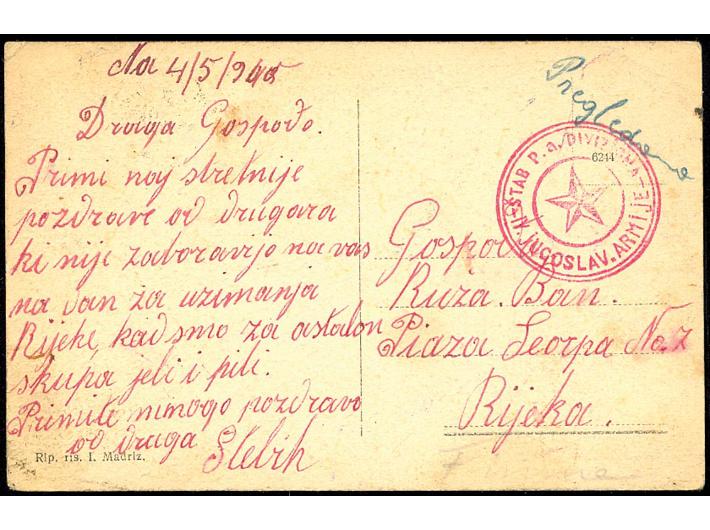 Na 4/5/945
Draga Gospođo.
Primi naj sretnije
pozdrave od drugara
ki nije zaboravjo na vas
na dan za uzimanja
Rijeke, kad smo za astalon
skupa jeli i pili.
Primite mnogo pozdravo
od druga
Rip. ris. I. Madriz.
Pregledano
ŠTAB P. a. DIVIZIONA
JUGOSLAV. ARMIJE
6244
Gospođa
Ruza. Ban.
Piaza Scorpa No. 7
Rijeka.